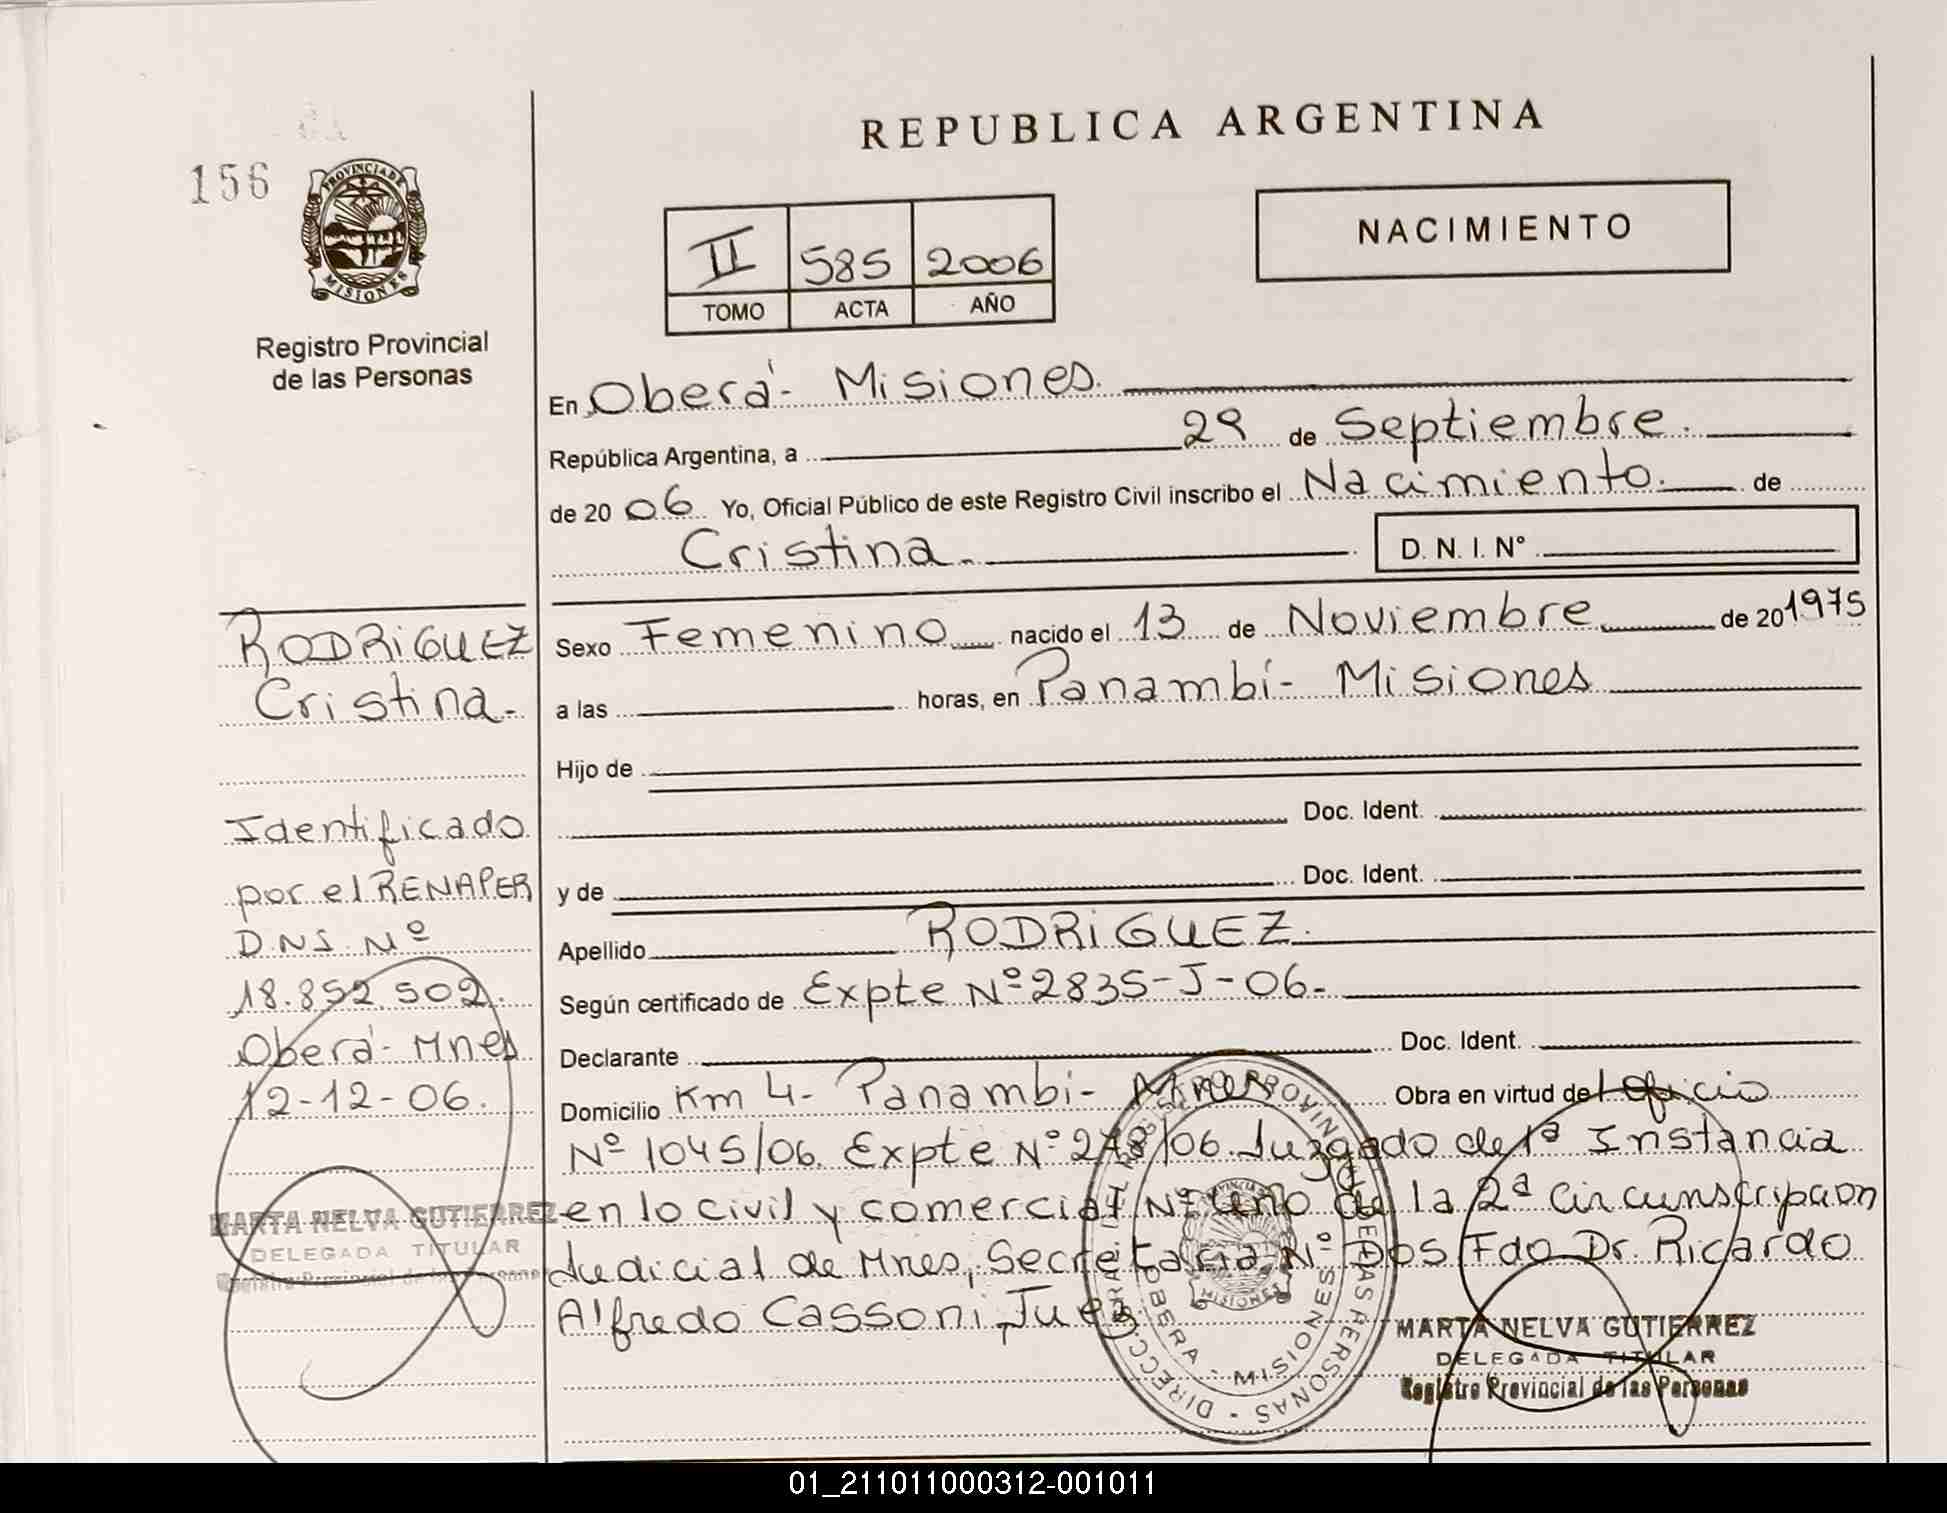 156
PROVINCIA DE
MISIONES
Registro Provincial
de las Personas
RODRIGUEZ
Cristina.-
Identificado
por el RENAPER
D.N.I. Nº
18.852.502.
Oberá- Mnes
12-12-06.
MARTA NELVA GUTIERREZ
DELEGADA TITULAR
Registro Provincial de las Personas
REPUBLICA ARGENTINA
II 585 2006
TOMO ACTA AÑO
NACIMIENTO
En Oberá- Misiones.
República Argentina, a 29 de Septiembre.
de 20 06 Yo, Oficial Público de este Registro Civil inscribo el Nacimiento. de
Cristina.- D. N. I. N°
Sexo Femenino nacido el 13 de Noviembre de 20 1975
a las horas, en Panambí- Misiones
Hijo de
Doc. Ident.
y de Doc. Ident.
Apellido RODRIGUEZ.
Según certificado de Expte Nº 2835-J-06.-
Declarante Doc. Ident.
Domicilio Km 4- Panambí- Mnes Obra en virtud del Oficio
Nº 1045/06. Expte Nº 278/06. Juzgado de 1ª Instancia
en lo civil y comercial Nº Uno de la 2ª Circunscripcion
Judicial de Mnes, Secretaria Nº Dos Fdo Dr. Ricardo
Alfredo Cassoni, Juez
MARTA NELVA GUTIERREZ
DELEGADA TITULAR
Registro Provincial de las Personas
OBERA - MISIONES
MISIONES
01_211011000312-001011